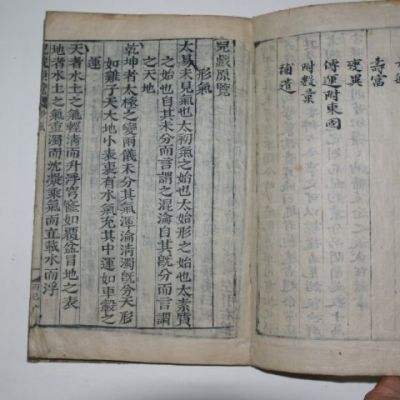 壽富
變異
傳運附東國
附數彙
補遺
兒戱原覽
形氣
太易未見氣也太初氣之始也太始形之始也太素質
之始也自其未分而言謂之混淪自其旣分而言謂
之天地
乾坤者太極之變兩儀未分其氣渾淪淸濁旣分天形
如雞子天大地小表裏有水氣充其中運如車轂之
運
天者水土之氣輕淸而升浮穹窿如覆盆冒地之表
地者水土之氣重濁而沈凝乘氣而立載水而浮